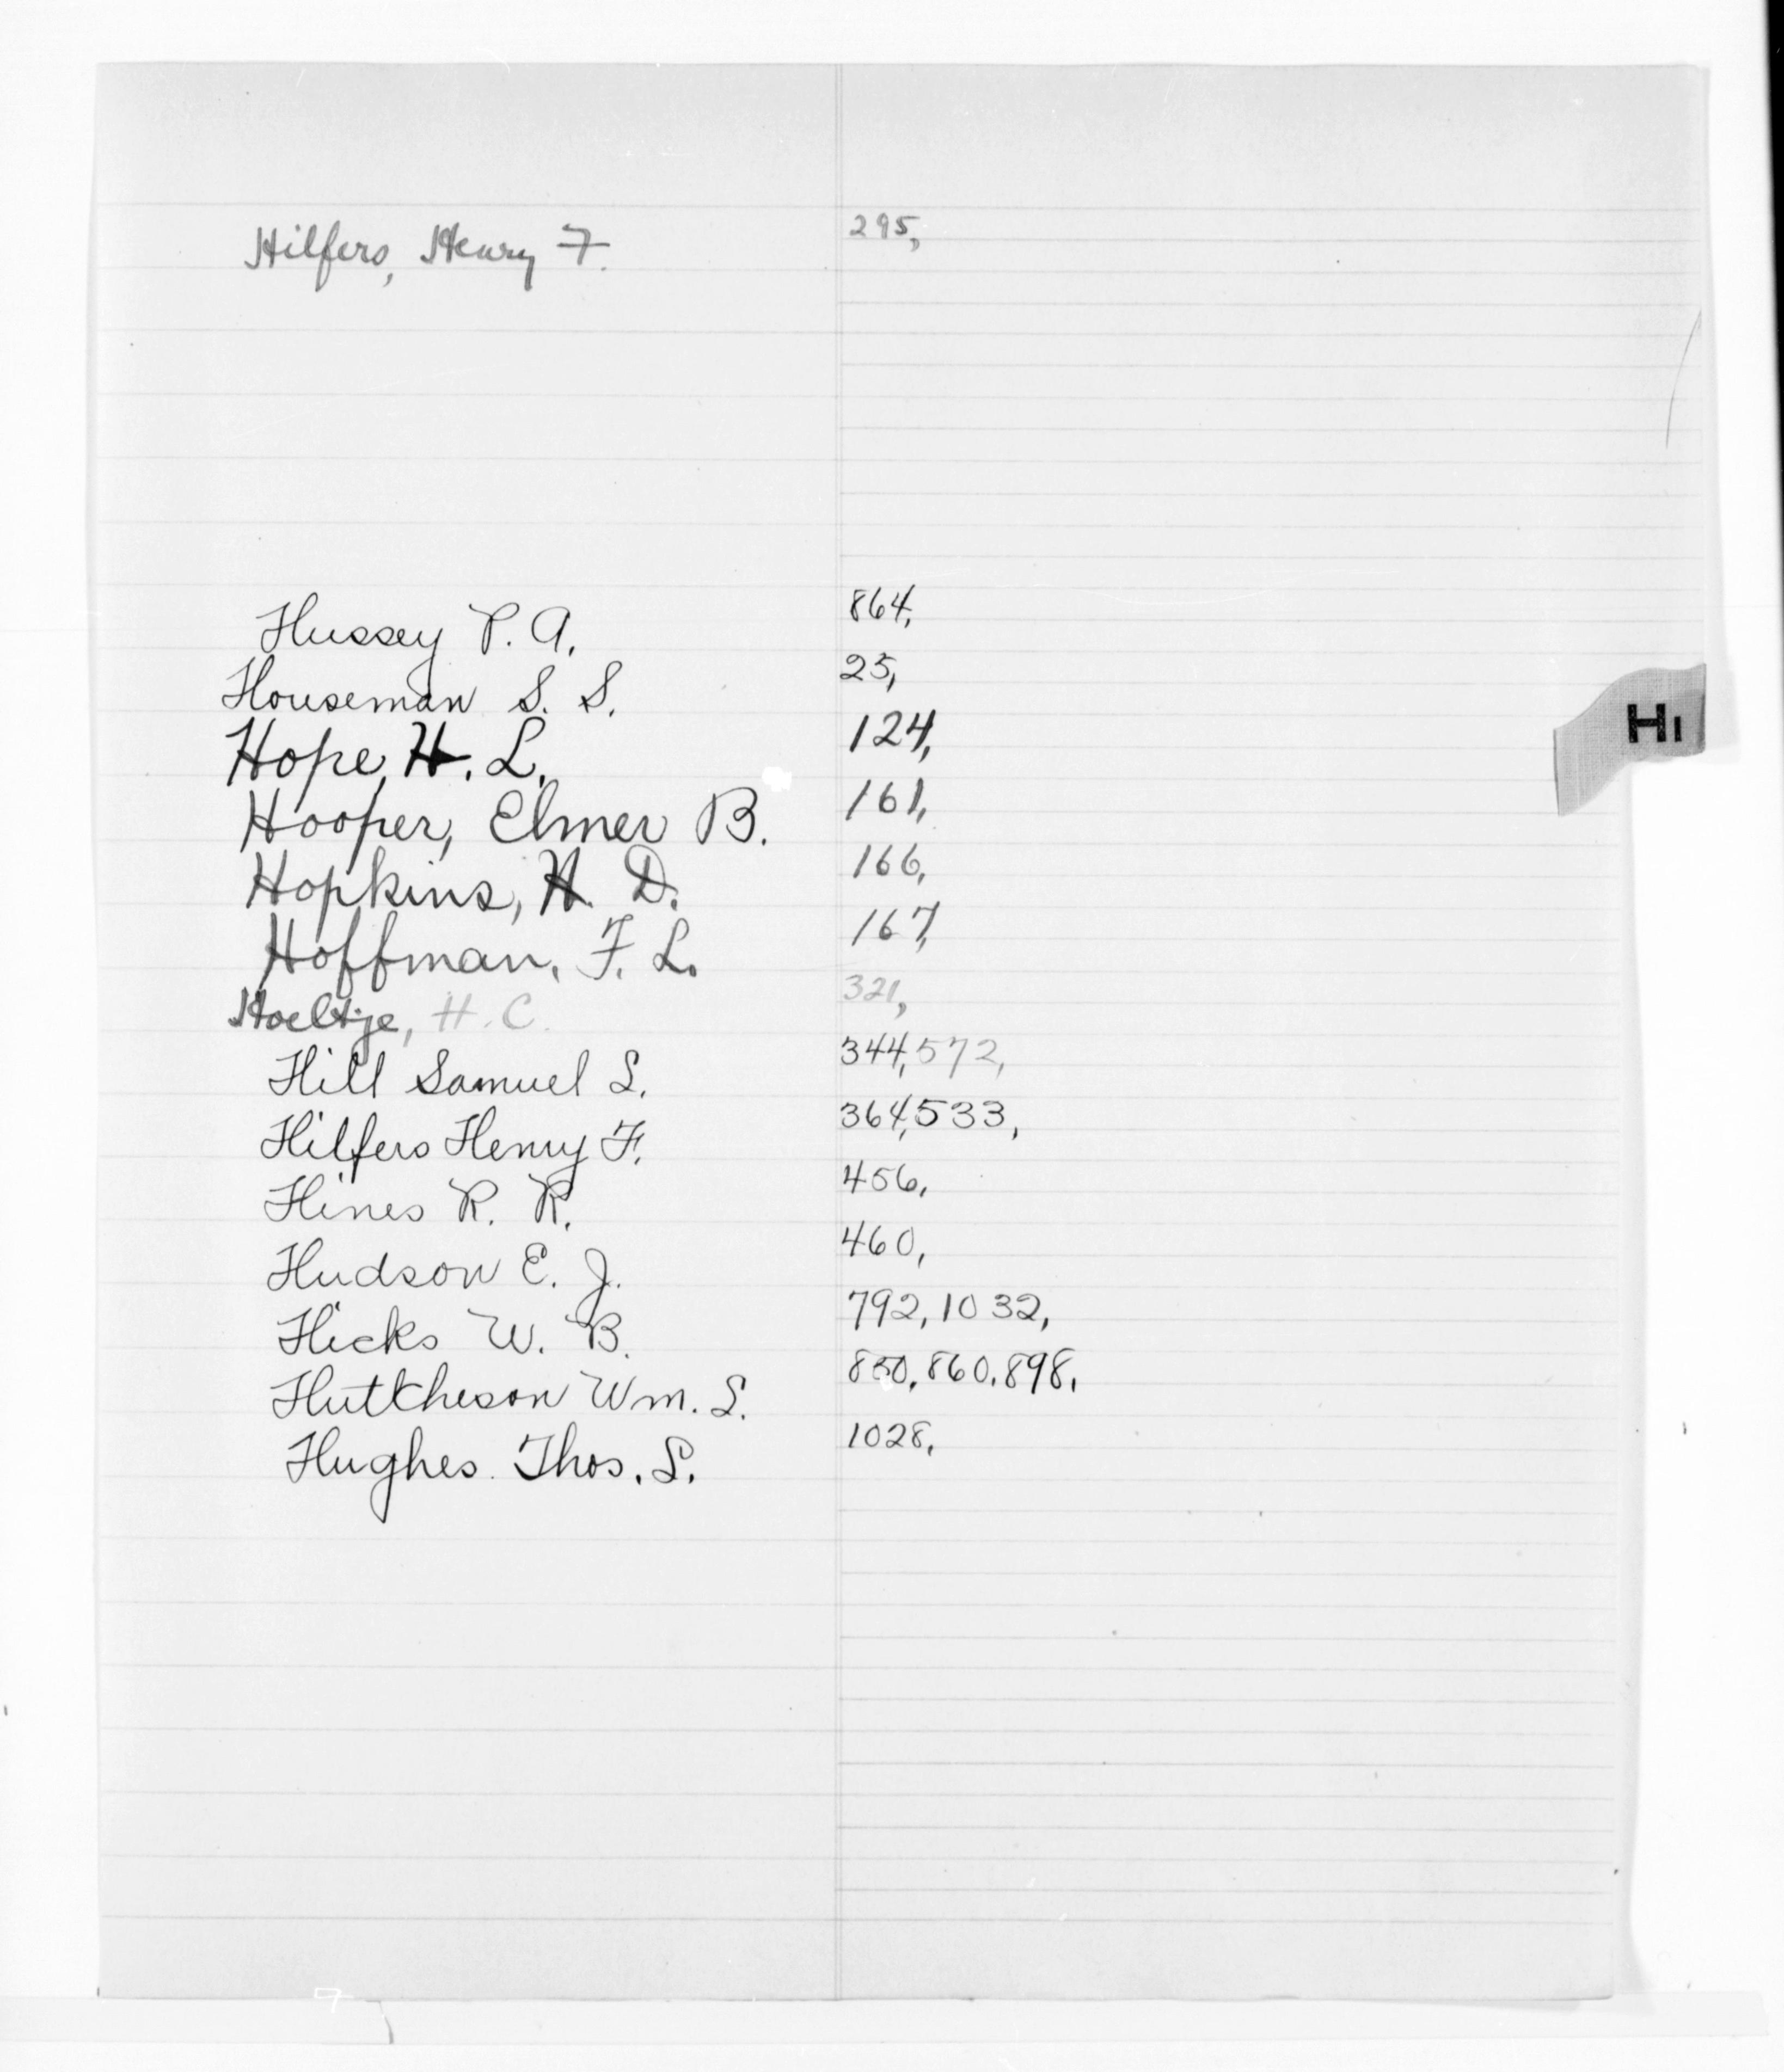 Hilfers, Henry F. 295,
Hussey P. A. 864,
Houseman S. S. 25,
Hope, H. L. 124,
HI
Hooper, Elmer B. 161,
Hopkins, H. D. 166,
Hoffman, F. L. 167,
Hoeltje, H. C. 321,
Hill Samuel L. 344, 572,
Hilfers Henry F. 364, 533,
Hines R. R. 456,
Hudson E. J. 460,
Hicks W. B. 792, 1032,
Hutcheson Wm. L. 850, 860, 898,
Hughes Thos. L. 1028,